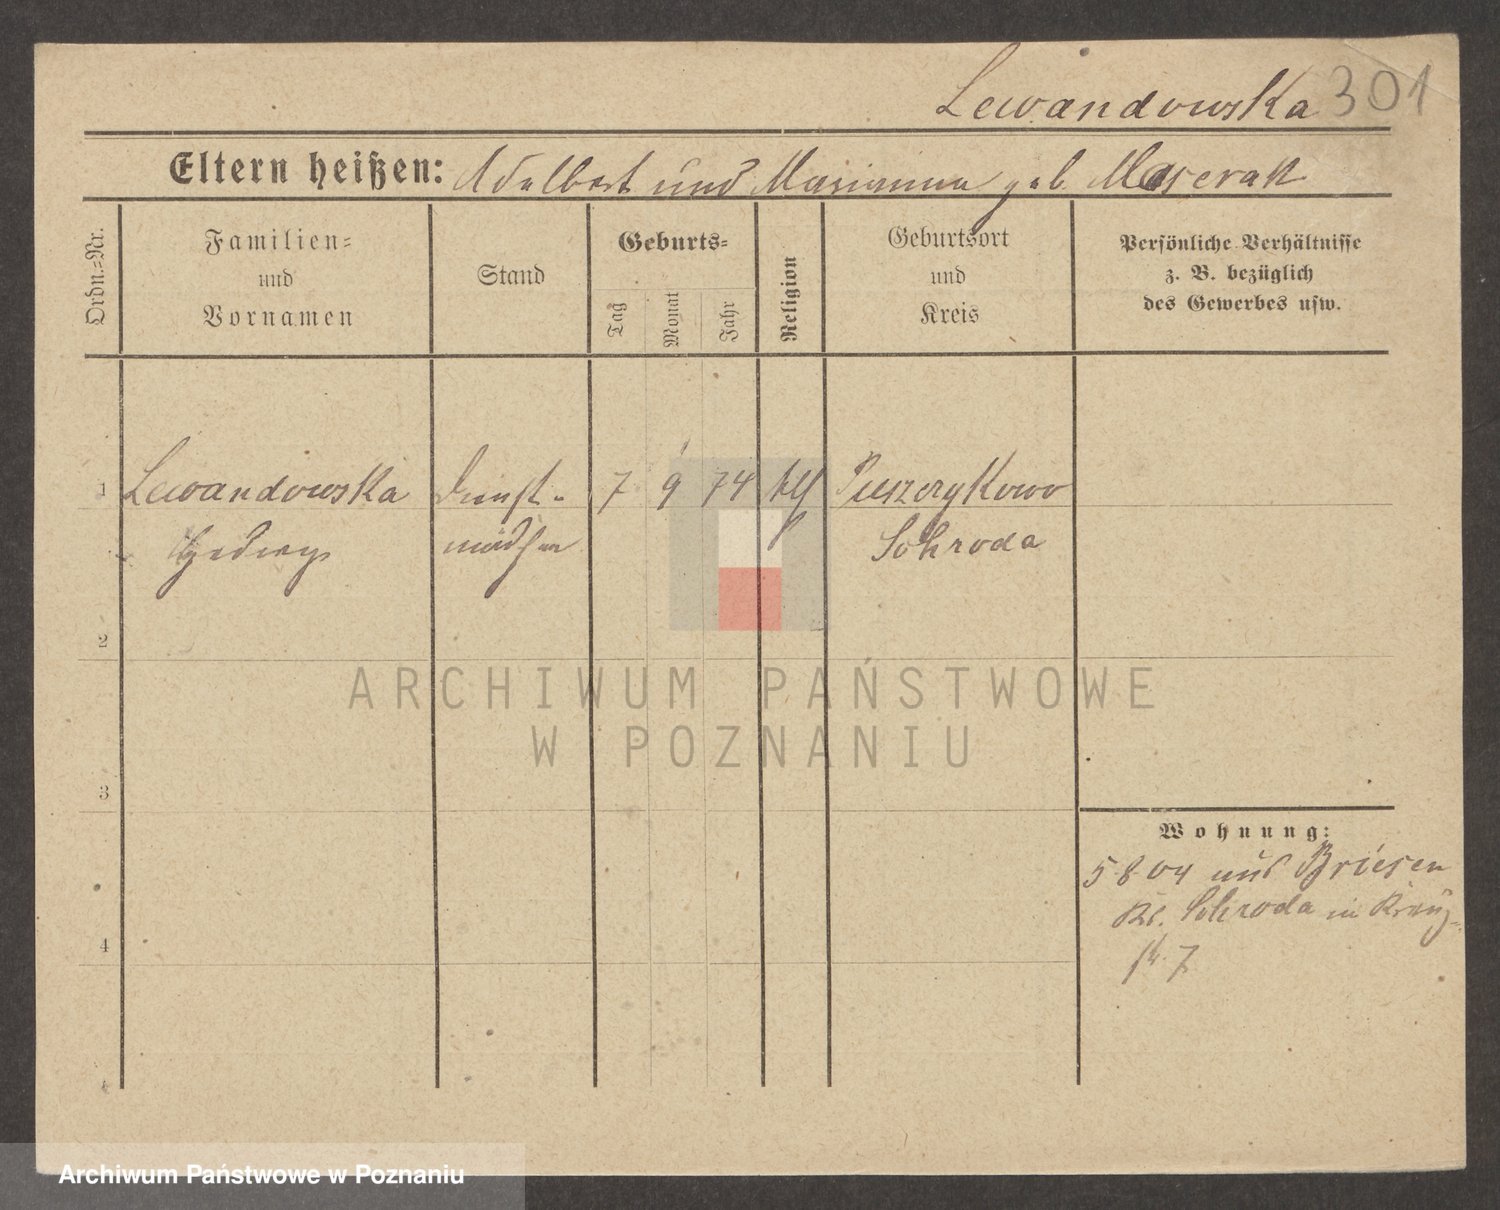 Lewandowska 301
Eltern heißen: Adalbert und Marianna geb.
Ordn.=Nr.
Familien=
und
Vornamen
Stand
Geburts=
Tag
Monat
Jahr
Religion
Geburtsort
und
Kreis
Persönliche Verhältnisse
z. B. bezüglich
des Gewerbes usw.
1 Lewandowska Dienst= 7 9 74 kth Puszczykowo
Hedwig mädchen Schroda
2
3
4
Wohnung:
5 8 04 aus Briesen
Kr. Schroda in Kreuz=
str. 7
ARCHIWUM PAŃSTWOWE
W POZNANIU
Archiwum Państwowe w Poznaniu